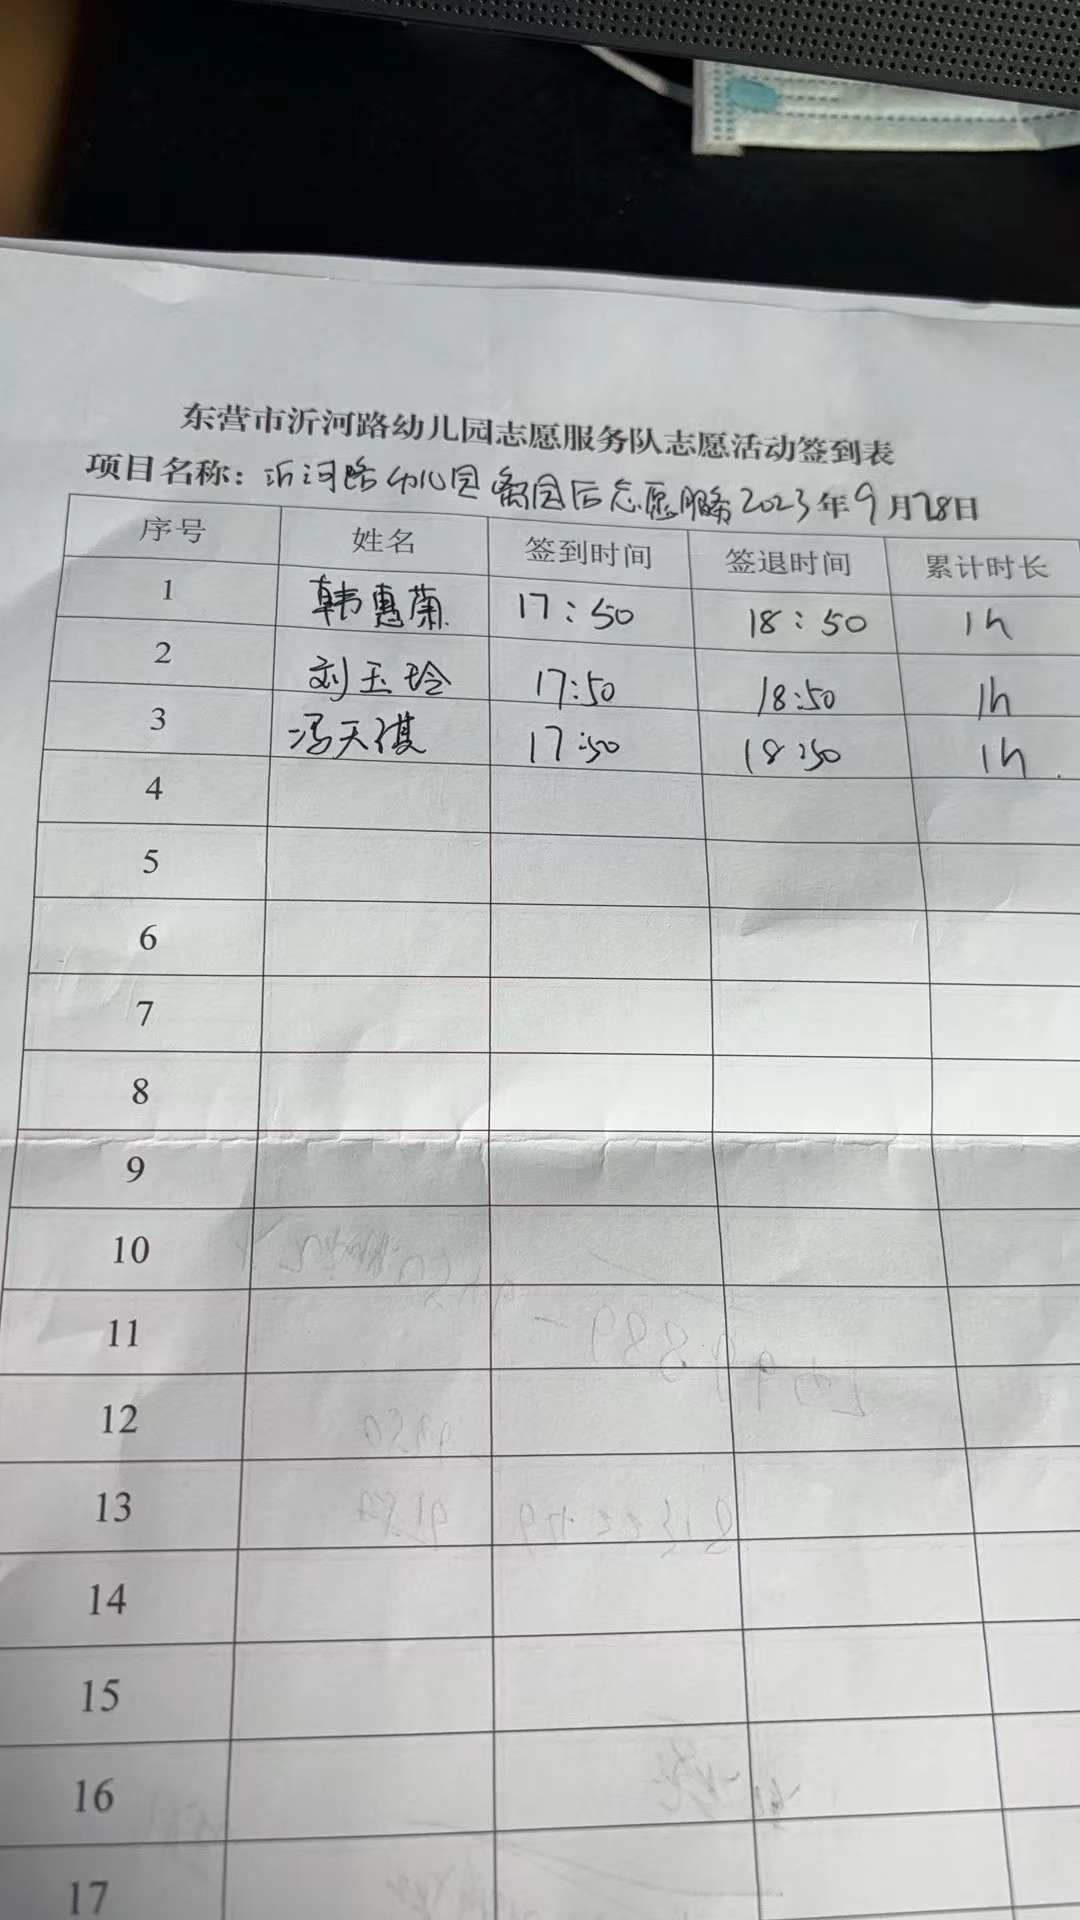 东营市沂河路幼儿园志愿服务队志愿活动签到表
项目名称：沂河路幼儿园离园后志愿服务2023年9月28日
序号 姓名 签到时间 签退时间 累计时长
1 韩惠菊 17:50 18:50 1h
2 刘玉玲 17:50 18:50 1h
3 冯天祺 17:50 18:50 1h
4
5
6
7
8
9
10
11
12
13
14
15
16
17